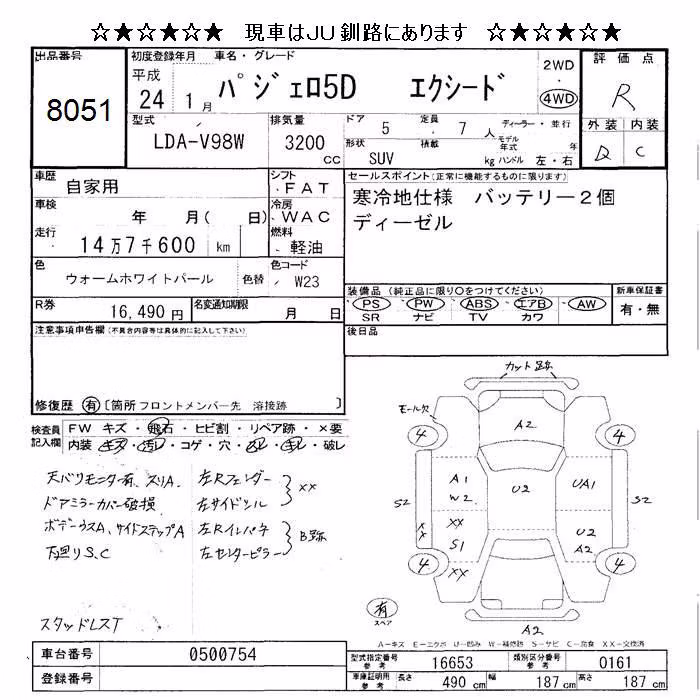 ☆★☆★☆★☆ 現車はＪＵ釧路にあります ☆★☆★☆★☆
出品番号 8051
初度登録年月 平成 24 1月
車名・グレード パジェロ5D エクシード
2WD ・ 4WD
評価点 R
外装 内装
D C
型式 LDA-V98W
排気量 3200 CC
ドア 5 定員 7 人 ディーラー・並行
形状 SUV 積載 kg モデル年式 年 ハンドル 左・右
車歴 自家用
シフト FAT
車検 年 月( 日)
冷房 WAC
走行 14万7千600 km
燃料 軽油
色 ウォームホワイトパール 色替
色コード W23
R券 16,490円
名変通知期限 月 日
セールスポイント(正常に機能するものに限ります)
寒冷地仕様 バッテリー2個
ディーゼル
装備品 (純正品に限り○をつけてください)
PS・PW・ABS・エアB・AW
SR ナビ TV カワ
新車保証書 有・無
後日品
注意事項申告欄(不具合内容等は具体的に記入して下さい)
修復歴 有 〔箇所 フロントメンバー先 溶接跡 〕
検査員記入欄
FW キズ・飛石・ヒビ割・リペア跡・×要
内装 キズ・汚レ・コゲ・穴・ ・ ・破レ
天バリモニター有、スリA
ドアミラーカバー破損
ボデーウスA、サイドステップA
下廻りS、C
スタッドレスT
左Rフェンダー
左サイドシル
XX
左Rインパネ
左センターピラー
B跡
カット跡
モール欠
4
4
A2
A1
W2
U2
UA1
S2
S2
XX
XX
S1
U2
A2
4
XX
4
有
スペア
A2
A－キズ E－エクボ U－凹み W－補修跡 S－サビ C－腐食 XX－交換済
車台番号 0500754
登録番号
型式指定番号 参考 16653
類別区分番号 参考 0161
車庫証明用 参考 長さ 490 cm 幅 187 cm 高さ 187 cm